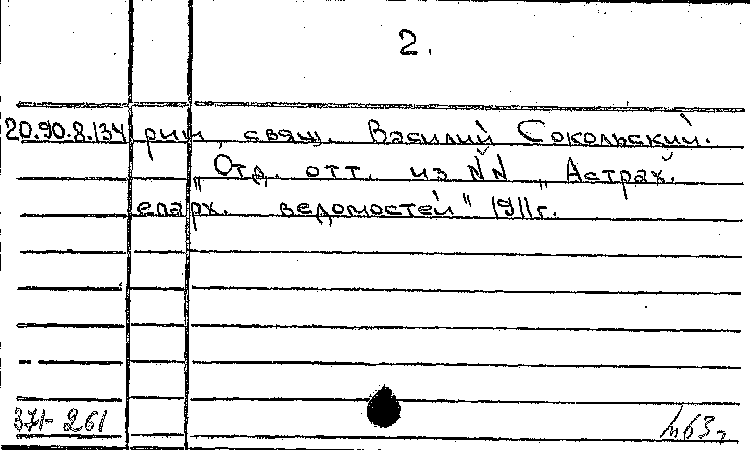 2.
20.90.8.134 рии, свящ. Василий Сокольский.
„Отд. отт. из №№ „Астрах.
епарх. ведомостей" 1911г.
371-261